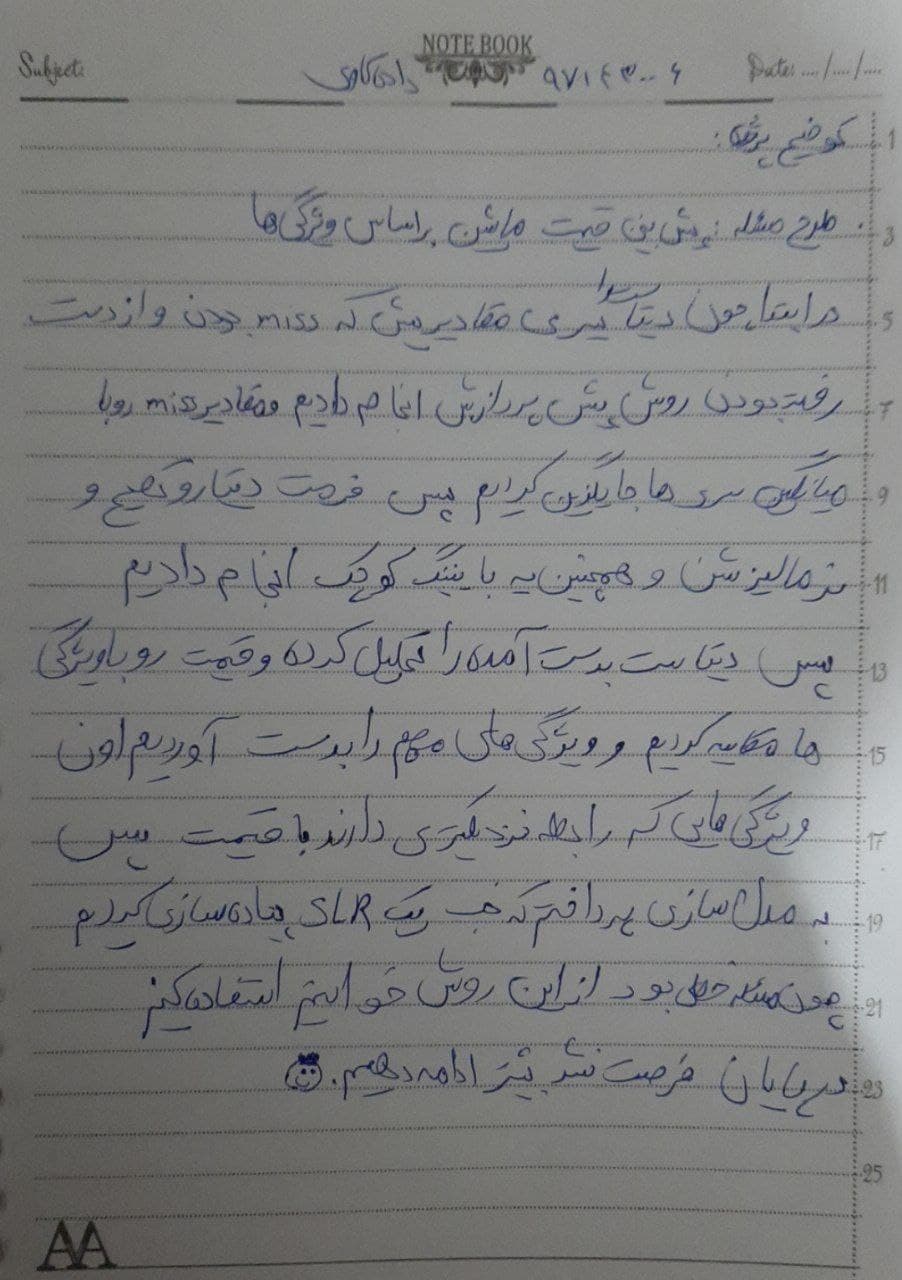 NOTE BOOK
Subject: داده‌کاوی ۹۷۱۴۳۰۰۶ Date: .../.../...
توضیح پروژه:
طرح مسئله: پیش بینی قیمت ماشین براساس ویژگی ها
در ابتدا چون دیتا ست ما یسری مقادیریش که miss بودن و از دست
رفته بودن روش پیش پردازش انجام دادیم و مقادیر miss رو با
میانگین سری ها جایگزین کردیم سپس فرمت دیتا رو تصحیح و
نرمالیزیشن و همچنین یه باینینگ کوچک انجام دادیم
سپس دیتاست بدست آمده را تحلیل کرده و قیمت رو با ویژگی
ها مقایسه کردیم و ویژگی های مهم را بدست آوردیم اون
ویژگی هایی که رابطه نزدیکتری دارند با قیمت سپس
به مدل سازی پرداختیم که خب یک SLR پیاده سازی کردیم
چون مسئله خطی بود از این روش خواستیم استفاده کنیم
در پایان فرصت نشد بیشتر ادامه دهیم.
1
3
5
7
9
11
13
15
17
19
21
23
25
AA